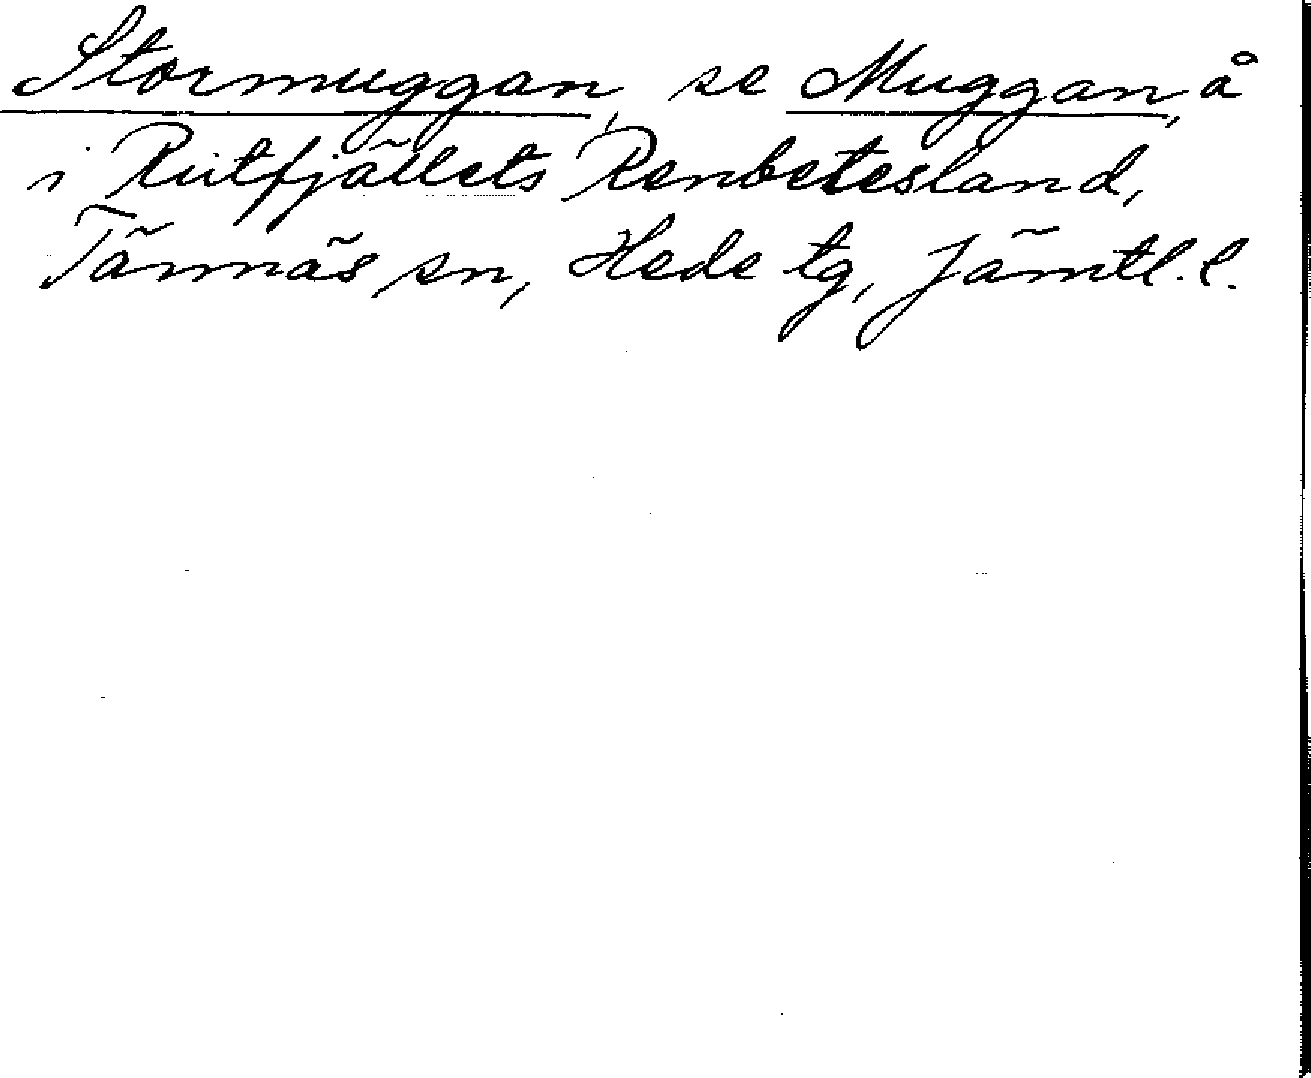 Stormuggan, se Muggan, å
i Rutfjällets Renbetesland,
Tännäs sn, Hede tg, Jämtl. l.